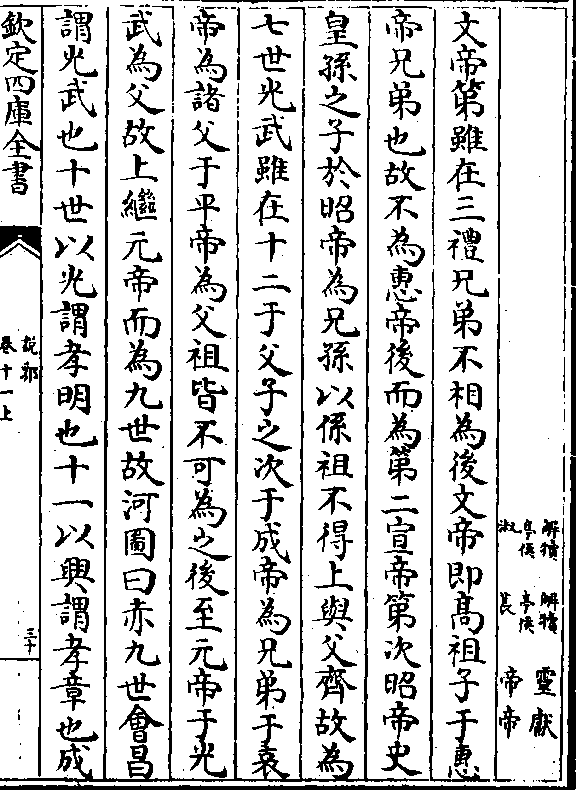 解犢亭侯淑
解犢亭侯萇
靈帝
獻帝
文帝第雖在三禮兄弟不相為後文帝即髙祖子于惠
帝兄弟也故不為惠帝後而為第二宣帝第次昭帝史
皇孫之子於昭帝為兄孫以係祖不得上與父齊故為
七世光武雖在十二于父子之次于成帝為兄弟于哀
帝為諸父于平帝為父祖皆不可為之後至元帝于光
武為父故上繼元帝而為九世故河圖曰赤九世會昌
謂光武也十世以光謂孝明也十一以興謂孝章也成
欽定四庫全書
説郛
卷十一上
三十